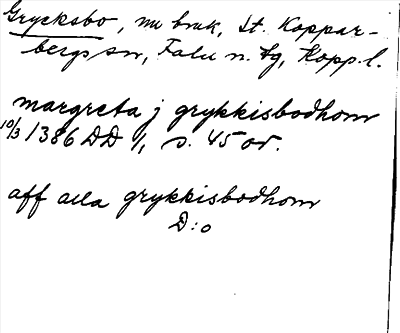 Grycksbo, nu bruk, St. Koppar-
bergs sn, Falu n. tg, Kopp. l.
margreta j grykkisbodhom
10/3 1386 DD 1, s. 45 or.
aff alla grykkisbodhom
D:o